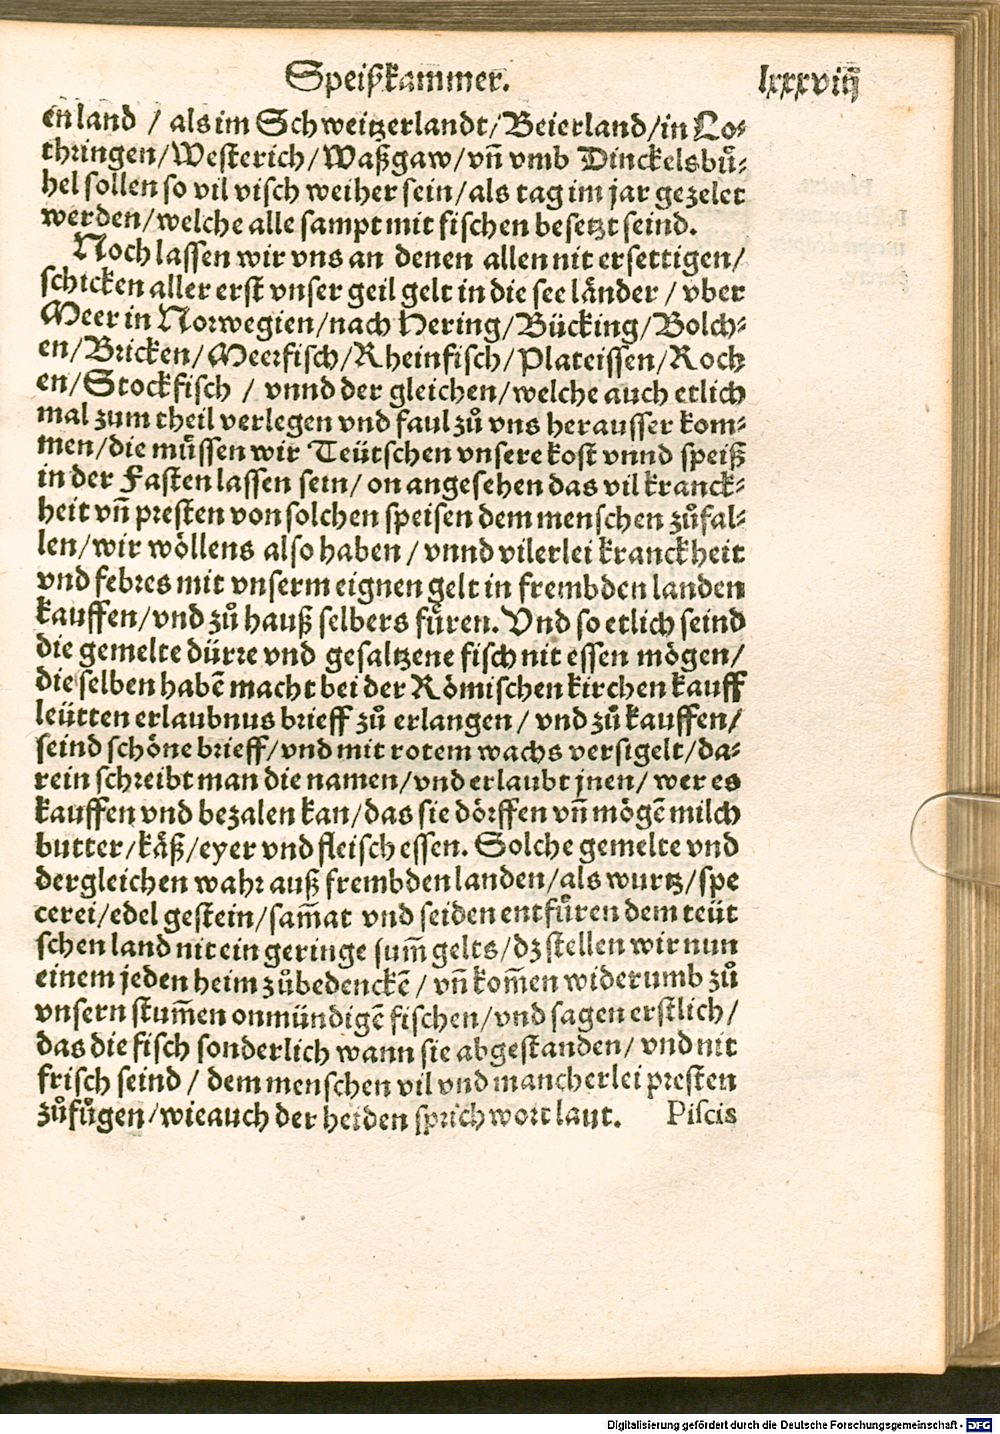 Speiſzkammer. lxxxviij
en land / als im Schweitzerlandt/Beierland/in Lo⸗
thringen/Weſterich/Waßgaw/vñ vmb Dinckelsbuͤ⸗
hel ſollen ſo vil viſch weiher ſein/als tag im jar gezelet
werden/welche alle ſampt mit fiſchen beſetzt ſeind.
Noch laſſen wir vns an denen allen nit erſettigen/
ſchicken aller erſt vnſer geil gelt in die ſee laͤnder / vber
Meer in Norwegien/nach Hering/Bücking/Bolch⸗
en/Bricken/Meerfiſch/Rheinfiſch/Plateiſſen/Roch
en/Stockfiſch / vnnd der gleichen/welche auch etlich
mal zum theil verlegen vnd faul zů vns herauſſer kom⸗
men/die muͤſſen wir Teütſchen vnſere koſt vnnd ſpeiß
in der Faſten laſſen ſein/ on angeſehen das vil kranck⸗
heit vñ preſten von ſolchen ſpeiſen dem menſchen zůfal⸗
len/wir woͤllens alſo haben / vnnd vilerlei kranckheit
vnd febres mit vnſerm eignen gelt in frembden landen
kauffen/vnd zů hauß ſelbers fuͤren. Vnd ſo etlich ſeind
die gemelte dürre vnd geſaltzene fiſch nit eſſen moͤgen/
die ſelben habẽ macht bei der Roͤmiſchen kirchen kauff
leütten erlaubnus brieff zů erlangen / vnd zů kauffen/
ſeind ſchoͤne brieff/vnd mit rotem wachs verſigelt/da⸗
rein ſchreibt man die namen/vnd erlaubt jnen/ wer es
kauffen vnd bezalen kan/das ſie doͤrffen vñ moͤgẽ milch
butter/kaͤß/eyer vnd fleiſch eſſen. Solche gemelte vnd
dergleichen wahr auß frembden landen/als wurtz/ſpe
cerei/edel geſtein/ſam̃at vnd ſeiden entfuͤren dem teüt
ſchen land nit ein geringe ſum̃ gelts/dz ſtellen wir nun
einem jeden heim zůbedenckẽ / vñ kom̃en widerumb zů
vnſern ſtum̃en onmündigẽ fiſchen/vnd ſagen erſtlich/
das die fiſch ſonderlich wann ſie abgeſtanden/ vnd nit
friſch ſeind / dem menſchen vil vnd mancherlei preſten
zůfuͤgen/wie auch der heiden ſprichwort laut. Piſcis
Digitalisierung gefördert durch die Deutsche Forschungsgemeinschaft - DFG